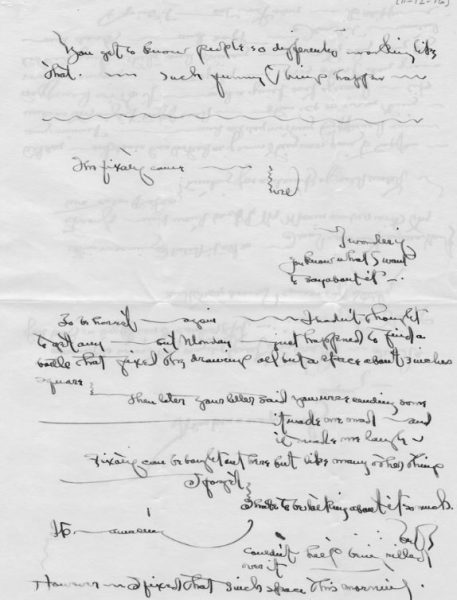 (11-12-16)
You get to know people so differently working like
that. — such funny things happen —
The fixatif came —
I wonder if
you know what I want
to say about it —.
To be honest — again — I hadn't thought
to get any — but Monday — just happened to find a
bottle that fixed my drawing all but a space about 3 inches
square
then later your letter said you were sending some
it made me mad — and
it made me laugh —
Fixatif can be bought out here but like many other things
I forget
I hate to be talking about it so much.
It — amusing
but
couldn't help being
over it
However — I fixed that 3 inch space this morning.